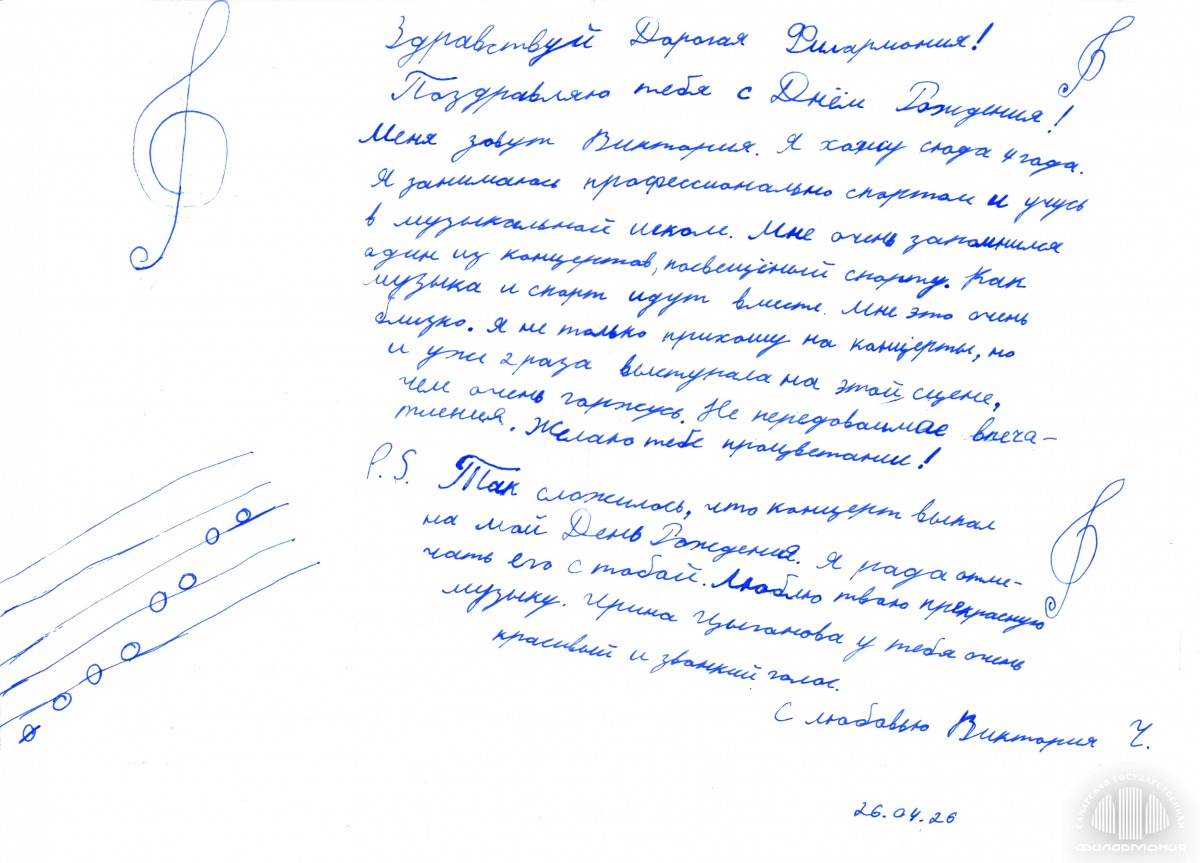 Здравствуй Дорогая Филармония!
Поздравляю тебя с Днём Рождения!
Меня зовут Виктория. Я хожу сюда 4 года.
Я занимаюсь профессионально спортом и учусь
в музыкальной школе. Мне очень запомнился
один из концертов, посвещёный спорту. Как
музыка и спорт идут вместе. Мне это очень
близко. Я не только прихожу на концерты, но
и уже 2 раза выступала на этой сцене,
чем очень горжусь. Не передоваимае впеча-
тления. Желаю тебе процветании!
P.S. Так сложилось, что концерт выпал
на мой День Рождения. Я рада отме-
чать его с тобой. Люблю твою прекрасную
музыку. Ирина Цыганова у тебя очень
красивый и звонкий голос.
С любовью Виктория Ч.
26.04.26
САМАРСКАЯ ГОСУДАРСТВЕННАЯ
ФИЛАРМОНИЯ